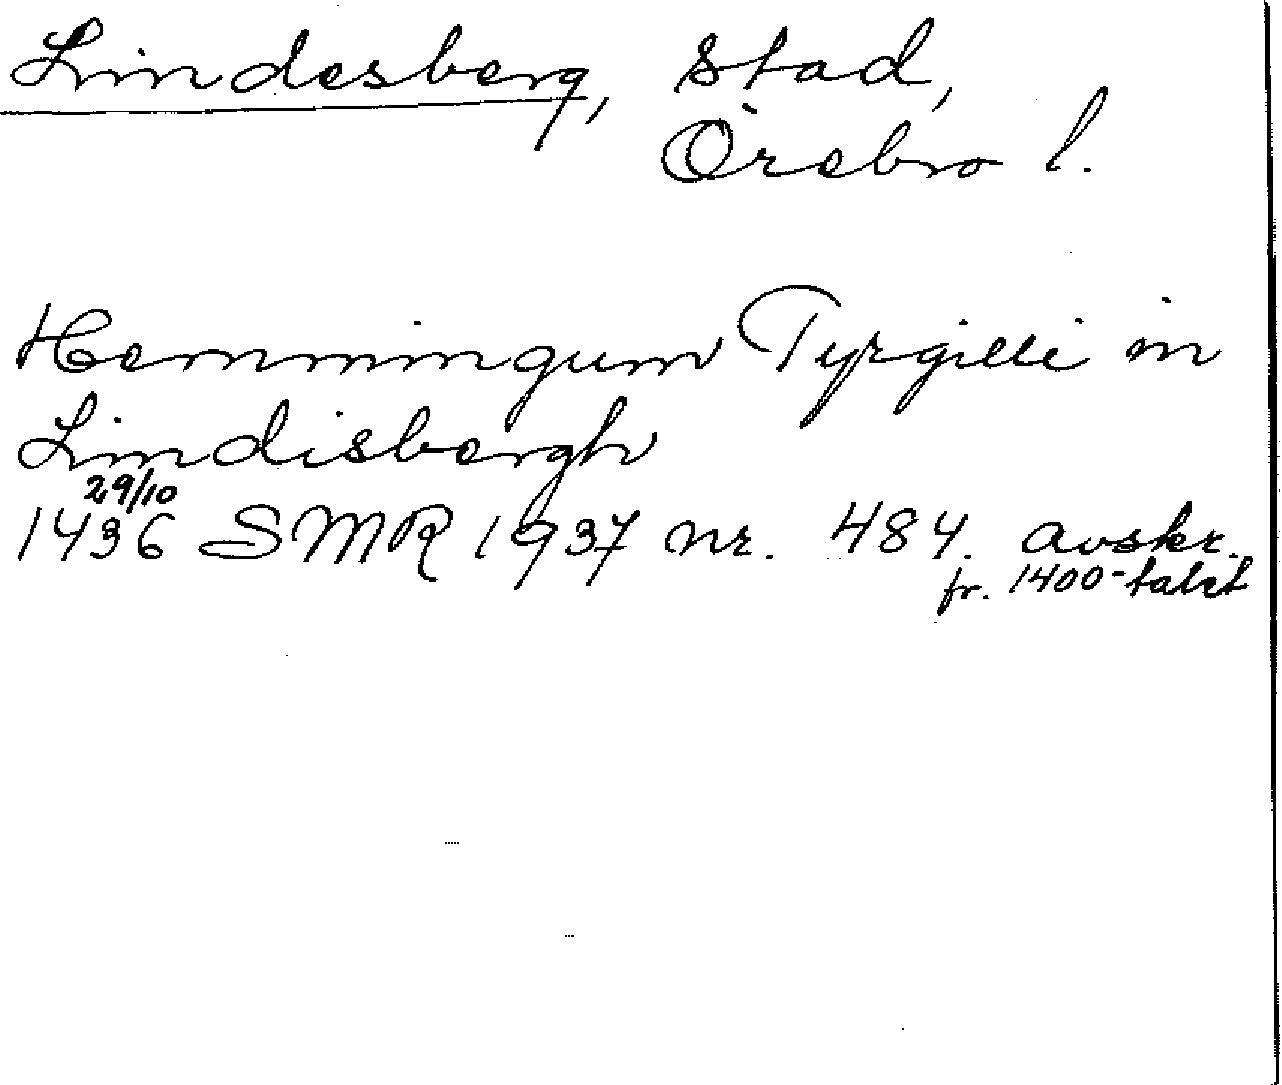 Lindesberg, stad,
Örebro l.
Hemmingum Tyrgilli in
Lindisbergh
29/10
1436 SMR 1937 nr. 484. avskr.
fr. 1400-talet